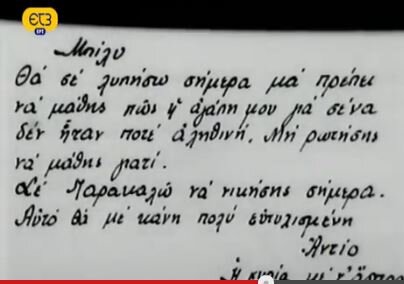 ΕΤ3
ΕΡΤ
Μπίλυ
Θά σέ λυπήσω σήμερα μά πρέπει
νά μάθης πῶς ἡ ἀγάπη μου γιά σένα
δέν ἦταν ποτέ ἀληθινή. Μή ρωτήσης
νά μάθης γιατί.
Σέ Παρακαλῶ νά νικήσης σήμερα.
Αὐτό θά μέ κάνη πολύ εὐτυχισμένη
Ἀντίο
Ἡ κυρία μέ τ'ἄσπρα